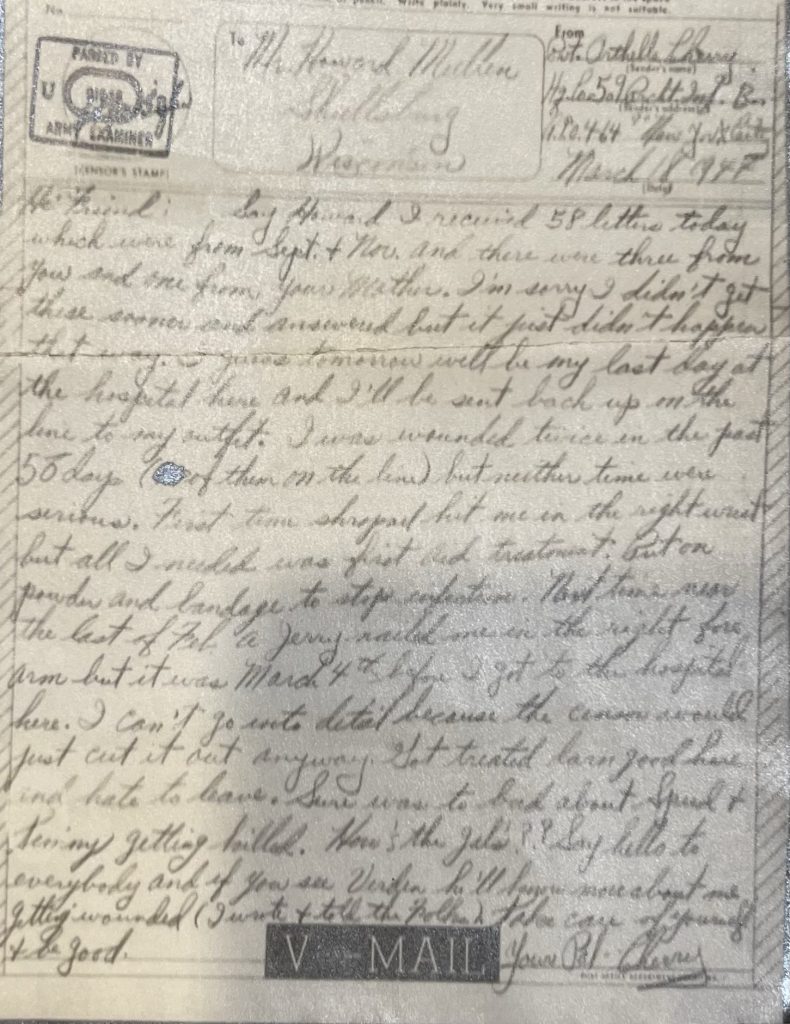 or pencil. Write plainly. Very small writing is not suitable.
No.
PASSED BY
U
ARMY EXAMINER
(CENSOR'S STAMP)
To
Mr. Howard Mullen
Shullsburg
Wisconsin
From
Pvt. Cherry
(Sender's name)
Hq. Co. 509 Bn.
(Sender's address)
A.P.O. 464 New York City
March 18, 1944
(Date)
Hi' Friend! Say Howard I received 58 letters today
which were from Sept. + Nov. and there were three from
you and one from your Mother. I'm sorry I didn't get
these sooner and answered but it just didn't happen
that way. I guess tomorrow will be my last day at
the hospital here and I'll be sent back up on the
line to my outfit. I was wounded twice in the past
56 days ( of them on the line) but neither time were
serious. First time shrapnel hit me in the right wrist
but all I needed was first aid treatment. Put on
powder and bandage to stop infection. Next time near
the last of Feb. a Jerry nailed me in the right fore
arm but it was March 4th before I got to the hospital
here. I can't go into detail because the censor would
just cut it out anyway. Got treated darn good here
and hate to leave. Sure was to bad about Speed +
getting killed. How's the gals?? Say hello to
everybody and if you see he'll know more about me
getting wounded (I wrote + told the folks). Take care of yourself
+ be good.
V-MAIL
Your Pal - Cherry